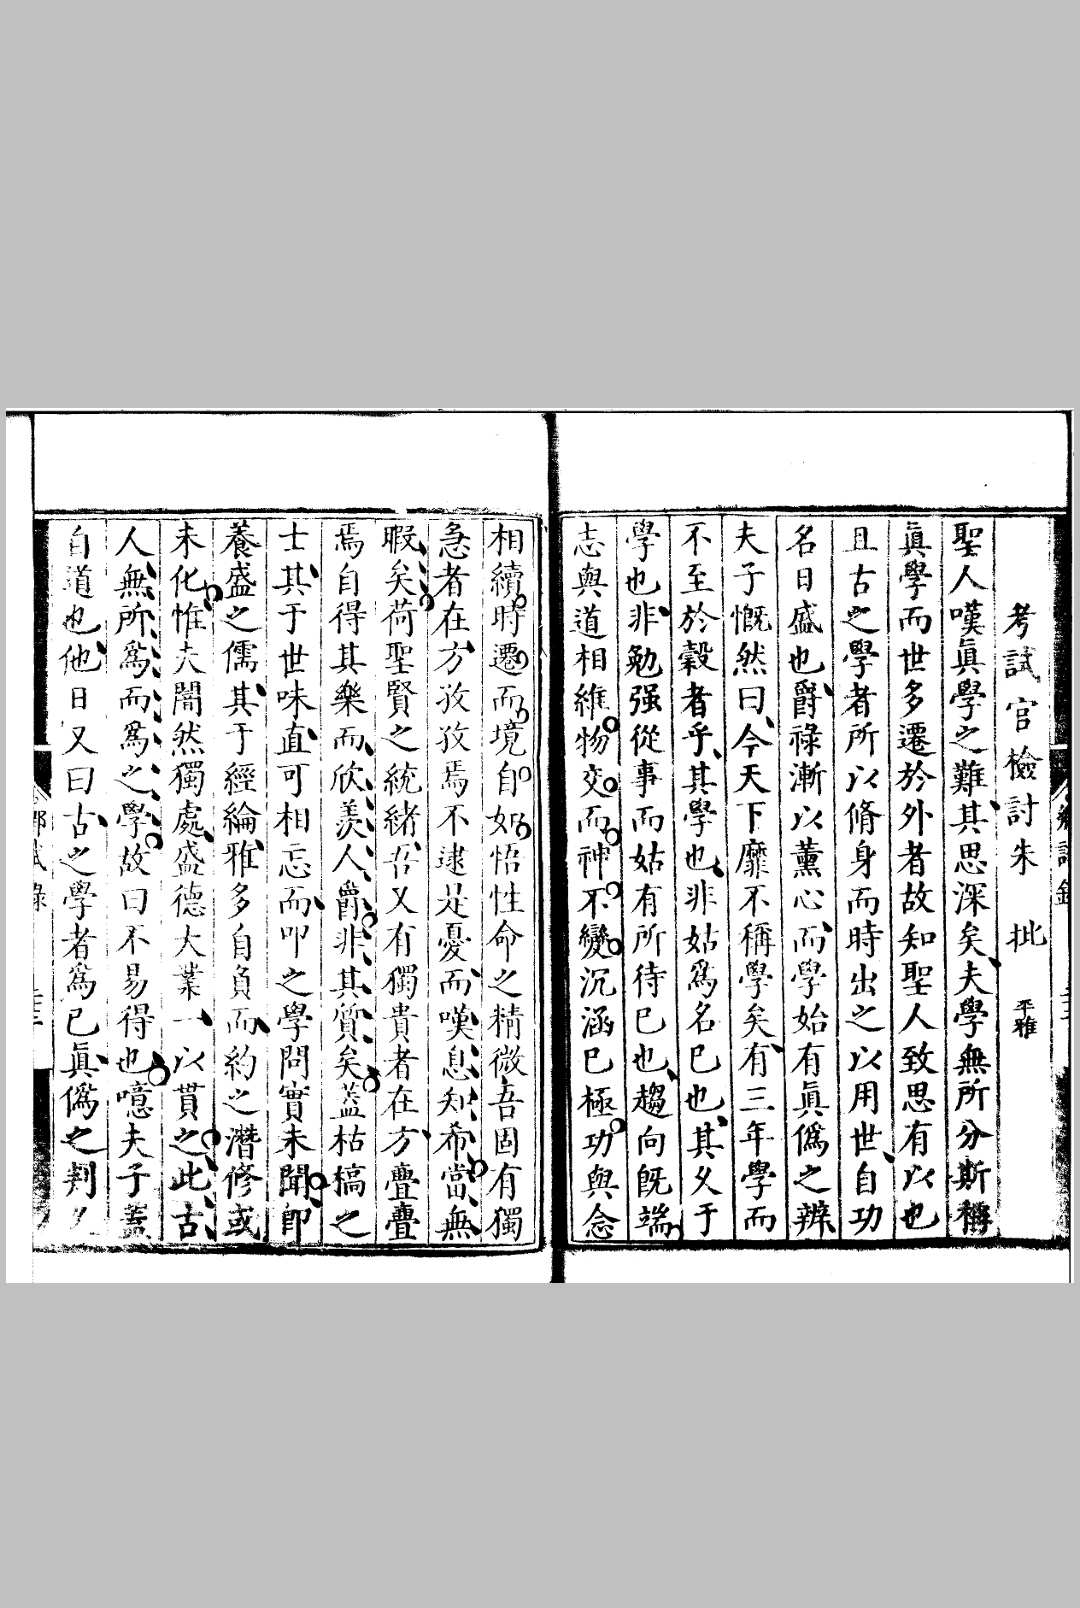 考試官檢討朱 批 平雅
聖人嘆眞學之難其思深矣夫學無所分斯稱
眞學而世多遷於外者故知聖人致思有以也
且古之學者所以脩身而時出之以用世自功
名日盛也爵祿漸以薰心而學始有眞僞之辨
夫子慨然曰今天下靡不稱學矣有三年學而
不至於穀者乎其學也非姑爲名已也其攵于
學也非勉强從事而姑有所待已也趨向旣端
志與道相維物交而神不變沉涵已極功與念
相續時遷而境自如悟性命之精微吾固有獨
急者在方孜孜焉不逮是憂而嘆息知希當無
暇矣荷聖賢之統緒吾又有獨貴者在方亹亹
焉自得其樂而欣羨人爵非其質矣蓋枯槁之
士其于世味直可相忘而叩之學問實未聞卽
養盛之儒其于經綸雅多自負而約之潛修或
未化惟夫闇然獨處盛德大業一以貫之此古
人無所爲而爲之學故曰不易得也噫夫子蓋
自道也他日又曰古之學者爲已眞僞之判